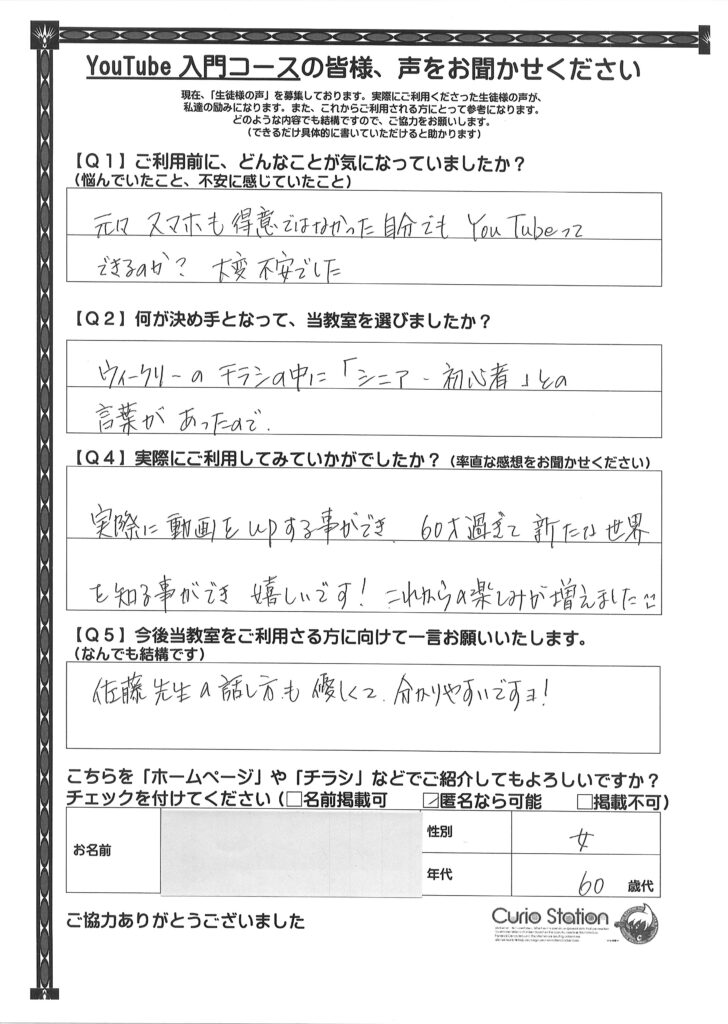 YouTube 入門コースの皆様、声をお聞かせください
現在、「生徒様の声」を募集しております。実際にご利用くださった生徒様の声が、
私達の励みになります。また、これからご利用される方にとって参考になります。
どのような内容でも結構ですので、ご協力をお願いします。
(できるだけ具体的に書いていただけると助かります)
【Q1】ご利用前に、どんなことが気になっていましたか？
(悩んでいたこと、不安に感じていたこと)
元々 スマホも得意ではなかった自分でも YouTubeって
できるのか？ 大変不安でした
【Q2】何が決め手となって、当教室を選びましたか？
ウィークリーの チラシの中に「シニア・初心者」との
言葉が あったので.
【Q4】実際にご利用してみていかがでしたか？(率直な感想をお聞かせください)
実際に動画をupする事ができ、60才過ぎて新たな世界
を知る事ができ 嬉しいです！これからの楽しみが増えました
【Q5】今後当教室をご利用さる方に向けて一言お願いいたします。
(なんでも結構です)
佐藤先生の話し方も 優しくて、分かりやすいですヨ！
こちらを「ホームページ」や「チラシ」などでご紹介してもよろしいですか？
チェックを付けてください(□名前掲載可 ☑匿名なら可能 □掲載不可)
お名前
性別 女
年代 60 歳代
ご協力ありがとうございました
Curio Station